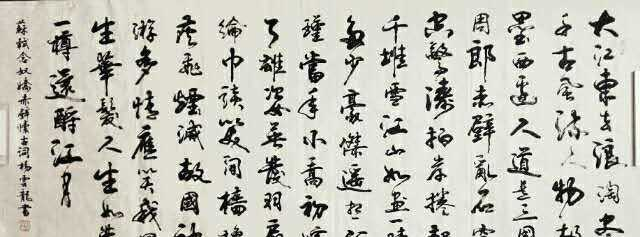 大江東去浪淘盡
千古風流人物故
壘西邊人道是三國
周郎赤壁亂石穿
空驚濤拍岸捲起
千堆雪江山如畫一時
多少豪傑遙想
瑾當年小喬初嫁
了雄姿英發羽扇
綸巾談笑間檣櫓
灰飛煙滅故國神
遊多情應笑我
生華髮人生如夢
一樽還酹江月
蘇軾念奴嬌赤壁懷古詞楊雲龍書